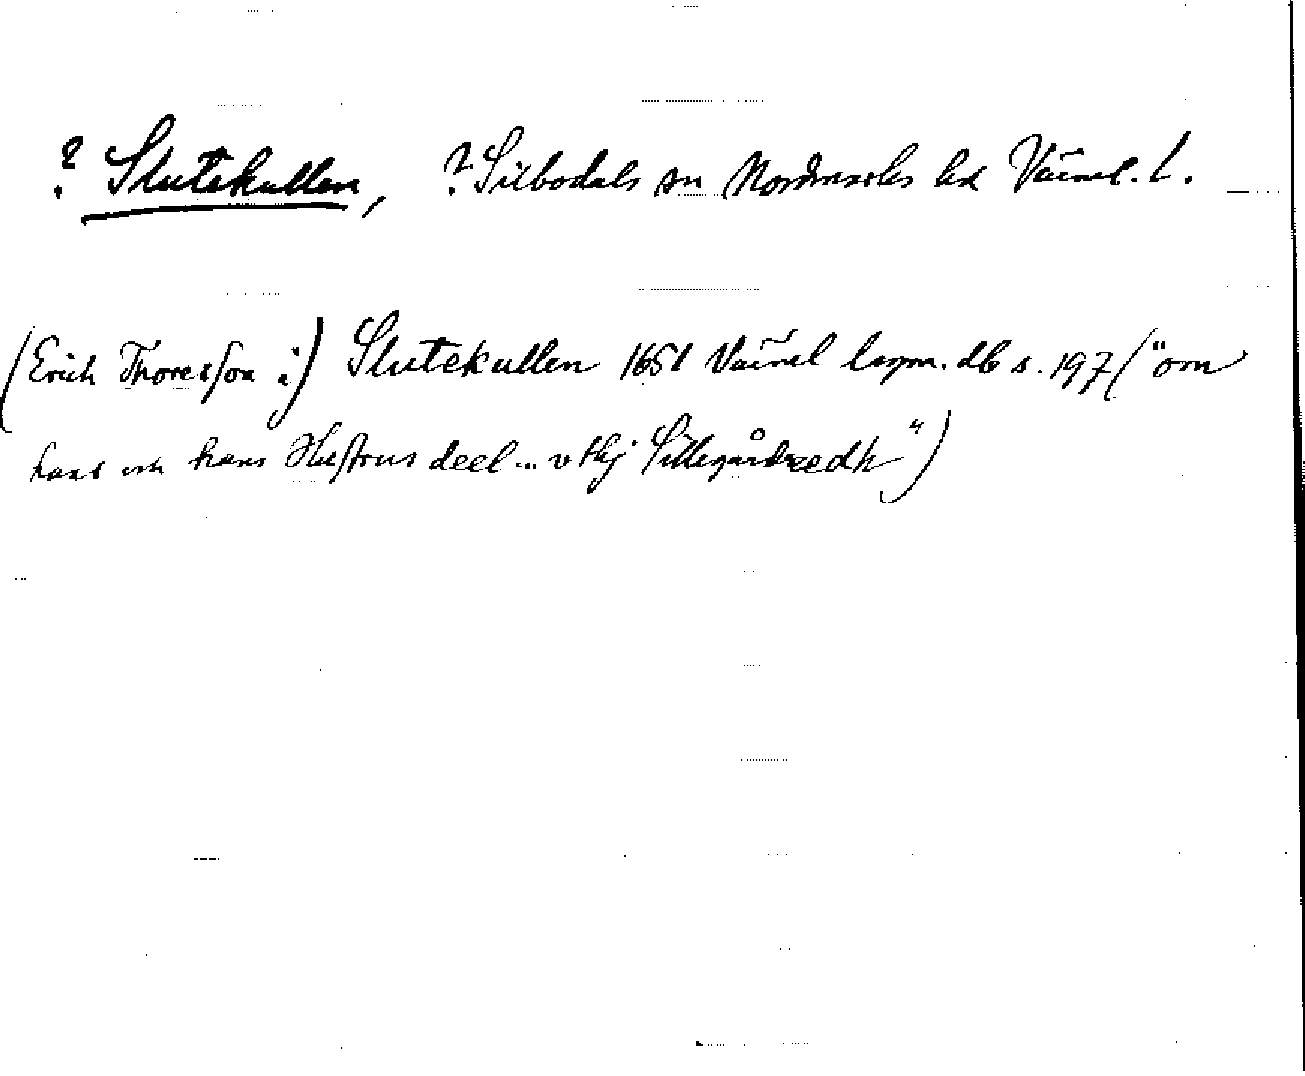 ? Slutekullen, ? Silbodals sn Nordmarks hd Värml. l.
(Erich Thoresson i) Slutekullen 1651 Värml lagm. db s. 197 ("om
hans och hans Hustrus deel ... v thj Sillegårdzedh")